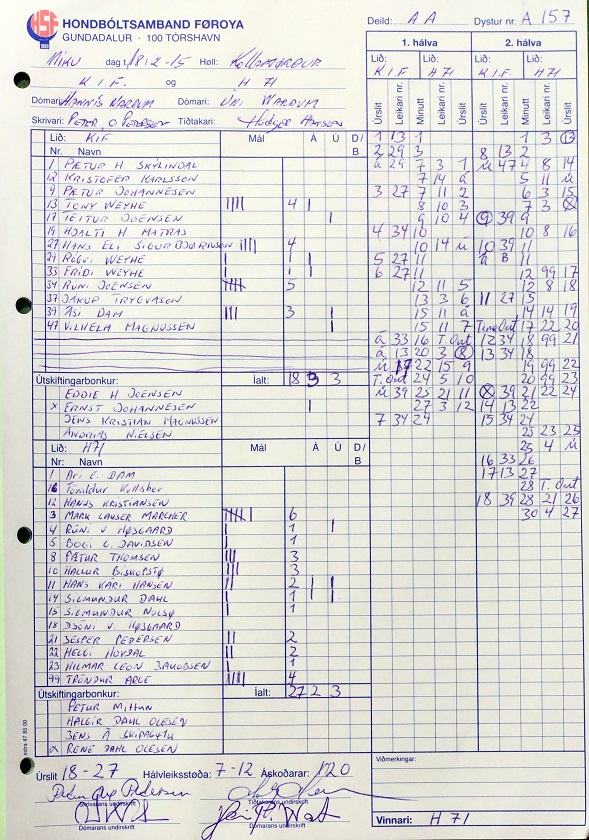 HSF HONDBÓLTSAMBAND FØROYA
GUNDADALUR · 100 TÓRSHAVN
Deild: A A Dystur nr. A 157
dag t. 18 12-15 Høll:
K.I.F. og H 71
Dómari: Dómari:
Skrivari: Tíðtakari:
1. hálva 2. hálva
Lið: Lið: Lið: Lið:
K I F H 71 K I F H 71
Úrslit Leikari nr. Minutt Leikari nr. Úrslit Úrslit Leikari nr. Minutt Leikari nr. Úrslit
Lið: KIF Mál Á Ú D/B
Nr. Navn
1 PÆTUR H SKYLINDAL
12 KRISTOFER KARLSSON
9 PÆTUR JOHANNESEN
13 TONY WEYHE IIII 4 I
17 TEITUR JOENSEN I
19 HJALTI H MATRAS
27 HANS ELI SIGURBJØRNSON IIII 4
29 RÓGVI WEYHE I 1 I
33 FRÍDI WEYHE I 1 I
34 RÚNI JOENSEN IIIII 5
37 JÁKUP TRYGVASON
39 ÁSI DAM III 3 I
47 VILHELM MAGNUSSEN I
Útskiftingarbonkur: Íalt: 18 3 3
EDDIE H JOENSEN
x ERNST JOHANNESEN I
JENS KRISTIAN MAGNUSSEN
ANDRIAS NIELSEN
Lið: H71 Mál Á Ú D/B
Nr: Navn
1 ARI C. DAM
16
12 HANUS KRISTIANSEN
3 MARK LAUSER MARCHER IIIII I 6
4 RÚNI V HØJGAARD I 1 I
5 BOGI C. DAVIDSEN I 1
8 PÆTUR THOMSEN III 3
10 HALLUR BISKOPSTØ III 3
11 HANS KARI HANSEN II 2 I I
14 SIGMUNDUR DAHL I 1 I I
15 SIGMUNDUR NOLSØ I 1
18 V. HØJGAARD
21 JESPER PEDERSEN II 2
22 HELGI HOYDAL II 2
23 HILMAR LEON JAKOBSEN I 1
99 TRÓNDUR ARGE IIII 4
Útskiftingarbonkur: Íalt: 27 2 3
PÆTUR
HALGIR DAHL OLESEN
JENS Á
x RENE DAHL OLESEN
1 13 1 1 3 13
2 29 3 8 13 2
á 29 7 3 1 ú 47 4 8 14
7 14 á 5 11 ú
3 27 7 11 2 6 3 15
8 10 3 7 3 x
9 10 4 9 39 9
4 34 10 10 8 16
10 14 ú 10 39 11
5 27 11 á B 11
6 27 11 12 99 17
12 11 5 12 8 18
13 3 6 11 27 15
15 11 á 14 14 19
15 11 7 Time Out 17 22 20
á 33 16 T. Out 12 34 18 99 21
á 13 20 3 8 13 34 18
ú 17 22 15 9 19 99 22
T. Out 24 5 10 20 99 23
ú 39 25 21 11 x 39 21 22 24
27 3 12 14 13 22
7 34 29 15 34 24
25 23 25
25 4 ú
16 33 26
17 13 27
28 T. Out
18 39 28 21 26
30 4 27
Úrslit 18-27 Hálvleiksstøða: 7-12 Áskoðarar: 120
Skrivarans undirskrift Tíðtakarans undirskrift
Dómarans undirskrift Dómarans undirskrift
Viðmerkingar:
Vinnari: H 71
estra 47 85 00